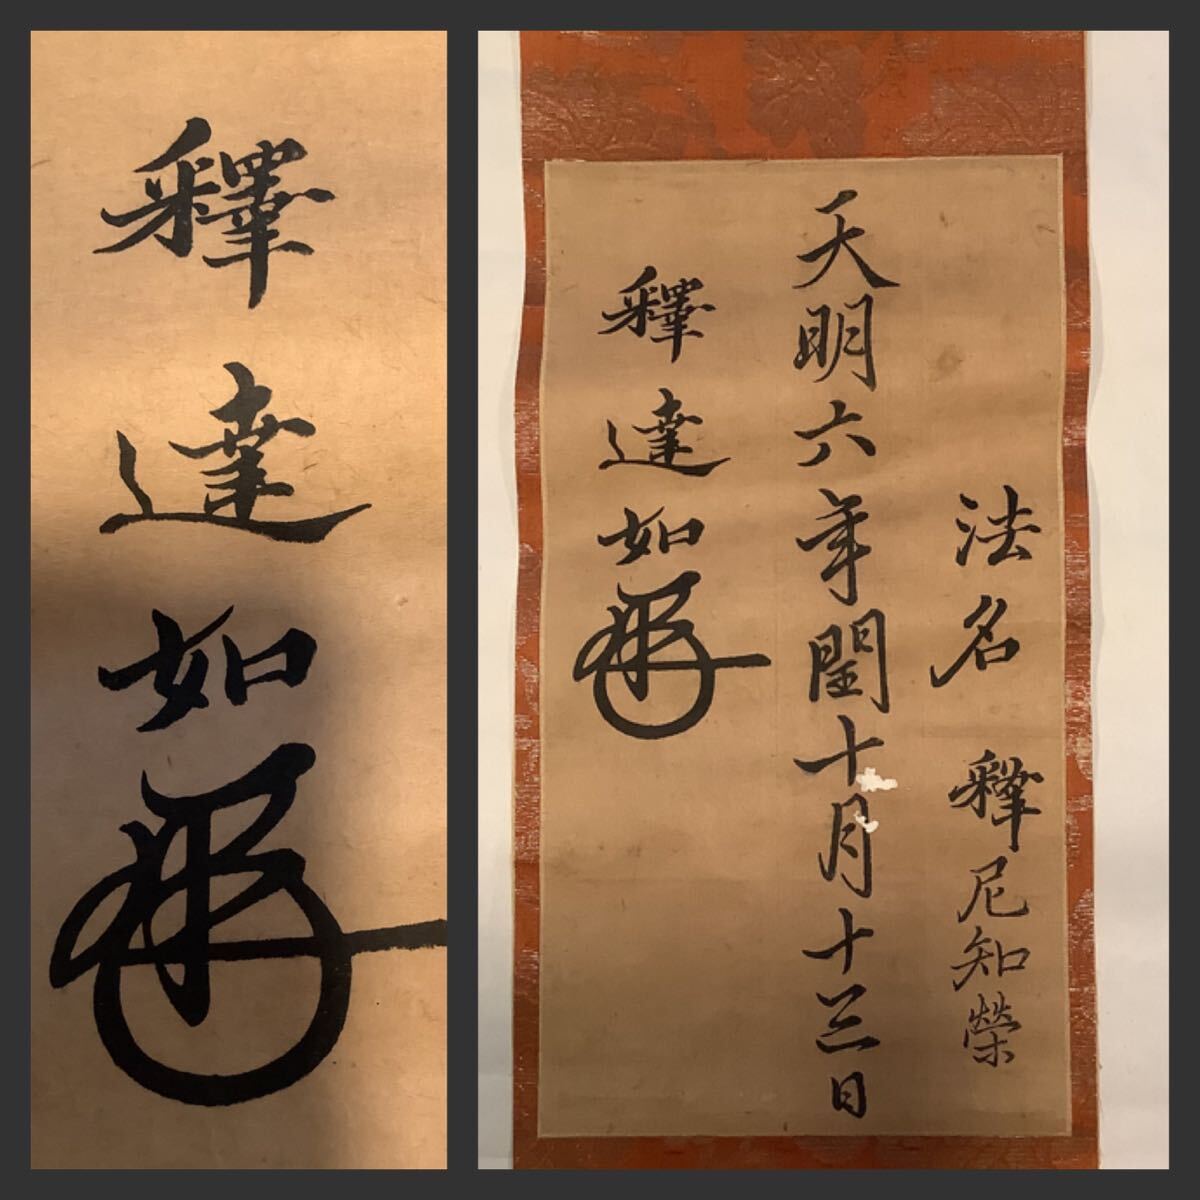 釋達如
法名 釋尼知榮
天明六年閏十月十三日
釋達如